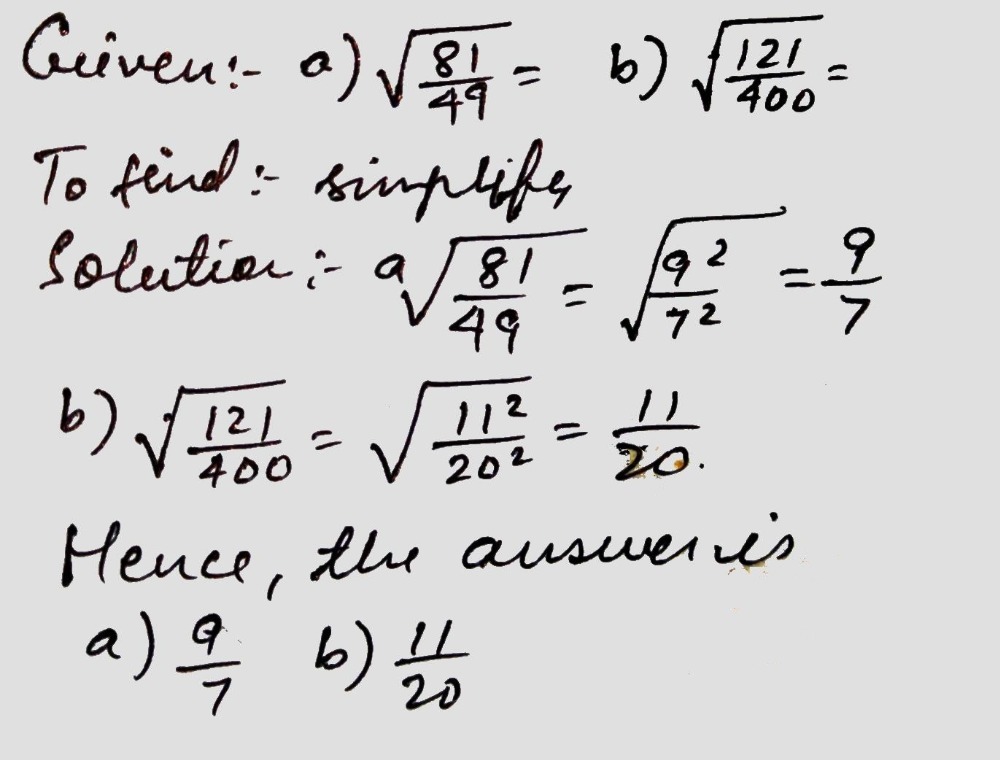 Given:- a) √(81/49) = b) √(121/400) =
To find:- simplify
Solution:- a √(81/49) = √(9²/7²) = 9/7
b) √(121/400) = √(11²/20²) = 11/20.
Hence, the answer is
a) 9/7 b) 11/20